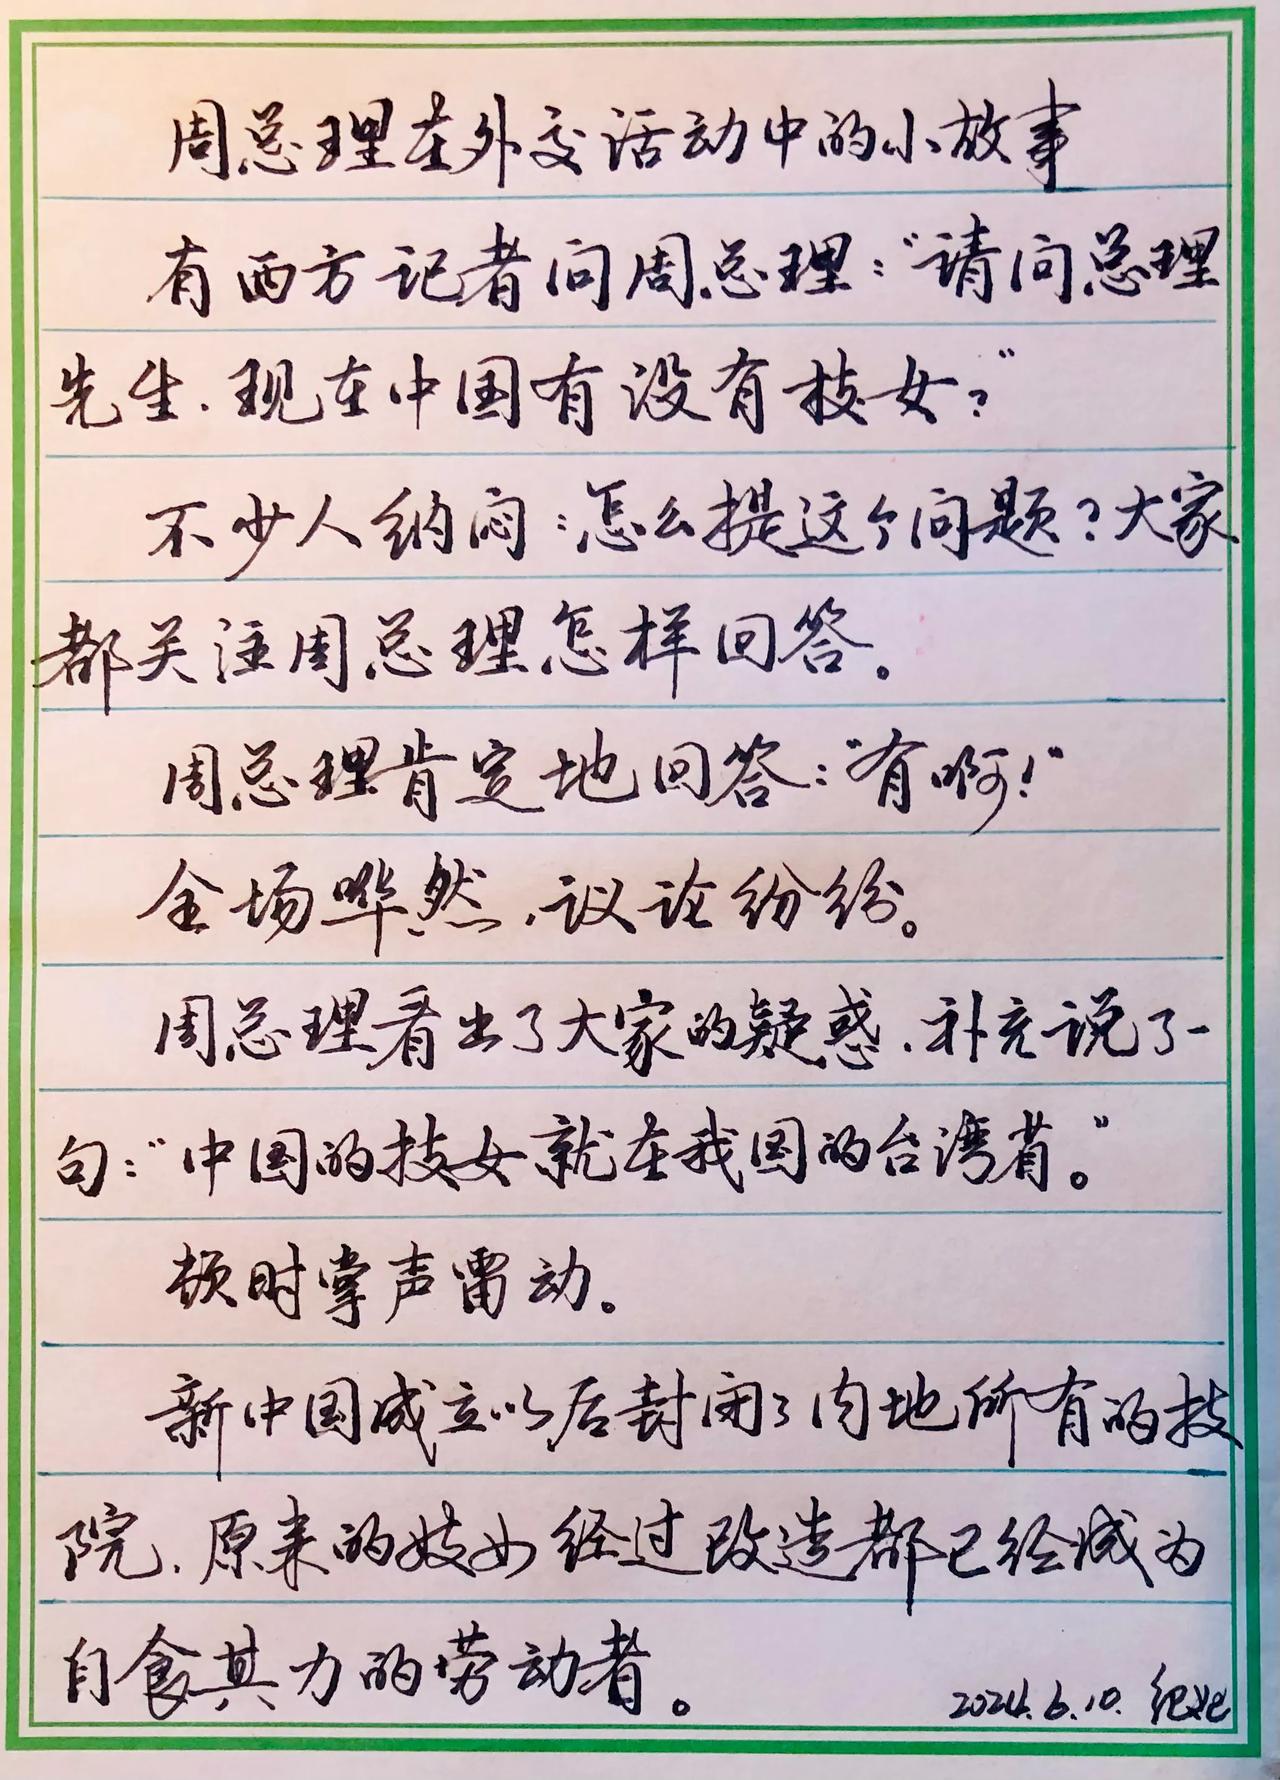 周总理在外交活动中的小故事
有西方记者问周总理：“请问总理
先生，现在中国有没有技女？”
不少人纳闷：怎么提这个问题？大家
都关注周总理怎样回答。
周总理肯定地回答：“有啊！”
全场哗然，议论纷纷。
周总理看出了大家的疑惑，补充说了一
句：“中国的技女就在我国的台湾省。”
顿时掌声雷动。
新中国成立以后封闭了内地所有的技
院，原来的妓女经过改造都已经成为
自食其力的劳动者。
2024.6.10.